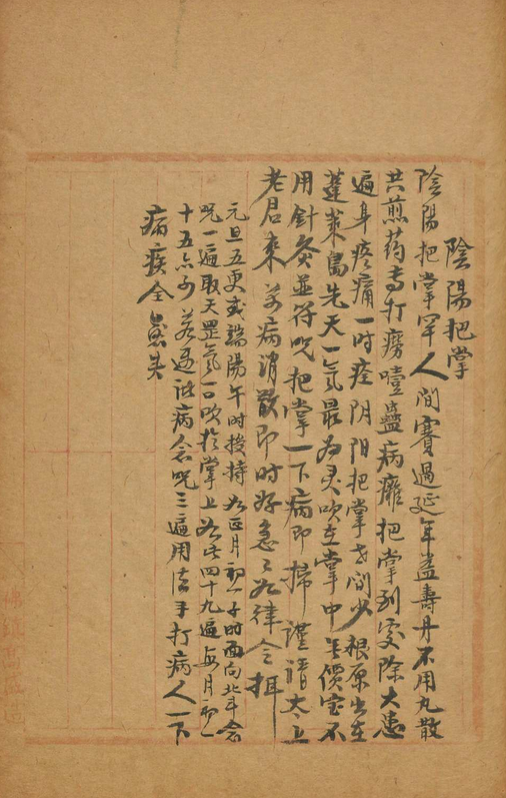 陰陽把掌
陰陽把掌罕人間賽過延年益壽丹不用丸散
共煎药专打痨噎蠱病癱把掌到處除大患
遍身疼痛一时痊阴阳把掌世间少根原出在
蓬萊島先天一氣最为灵吹在掌中無價宝不
用針灸並符咒把掌一下病即掃謹請太上
老君来万病消散即时好急〻如律令揖
元旦五更或端陽午时授持如正月初一子时面向北斗念
咒一遍取天罡氣一口吹於掌上如此四十九遍每月初一
十五亦可若遇諸病念咒三遍用法手打病人一下
病疾全愈矣